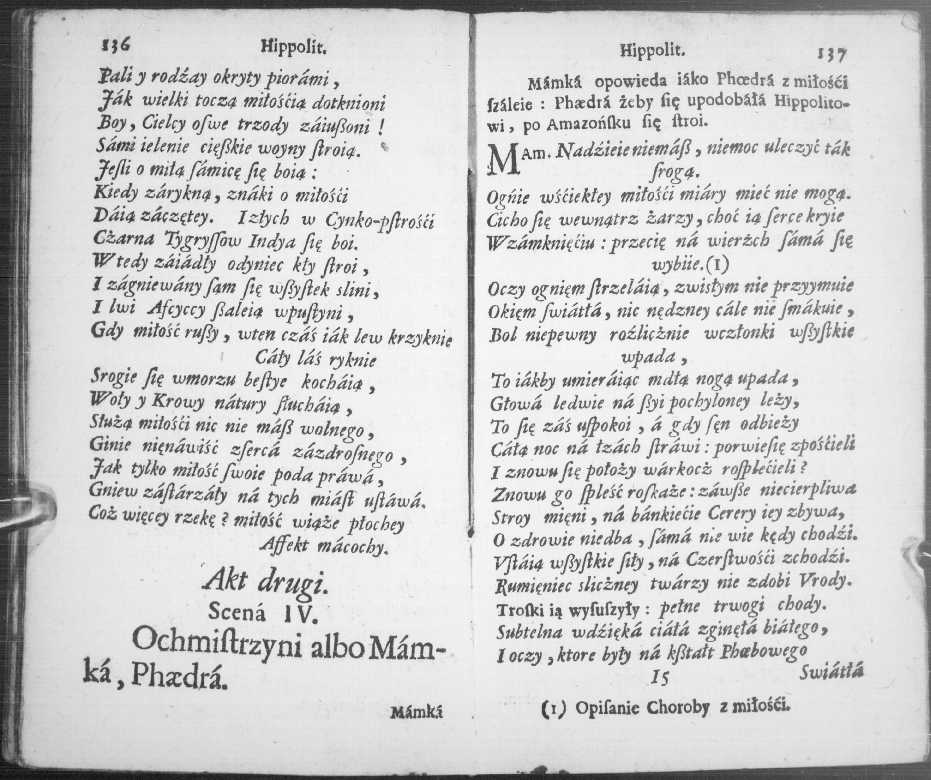 136 Hippolit.
Pali y rodźay okryty piorámi,
Ják wielki toczą miłośćią dotknioni
Boy, Cielcy oſwe trzody záiuſzoni!
Sámi ielenie cięſzkie woyny ſtroią.
Jeſli o miłą ſámicę ſię boią:
Kiedy záryKną, znáki o miłośći
Dáią záczętey. Izłych w Cynko-pſtrośći
Czarna Tygryſſow Indya ſię boi.
W tedy záiádły odyniec kły ſtroi,
I zágniewány ſam ſię wſzyſtek slini,
I lwi Afcyccy ſzaleią wpuſtyni,
Gdy miłość ruſzy, wten czáś iák lew krzyknie
Cáły láś ryknie
Srogie ſię wmorzu beſtye kocháią,
Woły y Krowy nátury ſłucháią,
Służą miłośći nic nie máſz wolnego,
Ginie nięnáwiść zſercá zázdroſnego,
Jak tylko miłość ſwoie poda práwá,
Gniew záſtárzáły ná tych miáſt uſtáwá.
Coż więcey rzekę? miłość wiąże płochey
Affekt mácochy.
Akt drugi.
Scená IV.
Ochmiſtrzyni albo Mám-
ká, Phædrá.
Mámká
Hippolit. 137
Mámká opowieda iáko Phœdrá z miłośći
ſzáleie: Phædrá żeby ſię upodobáłá Hippolito-
wi, po Amazońſku ſię ſtroi.
MAm. Nadźieie niemáſz, niemoc uleczyć ták
ſrogą.
Ogńie wśćiekłey miłośći miáry mieć nie mogą.
Cicho ſię wewnątrz żarzy, choć ią ſerce kryie
Wzámknięćiu: przecię ná wierżch ſámá ſię
wybiie.(1)
Oczy ognięm ſtrzeláią, zwisłym nie przyymuie
Okięm ſwiátłá, nic nędzney cále nie ſmákuie,
Bol niepewny roźliczżnie wczłonki wſzyſtkie
wpada,
To iákby umieráiąc mdłą nogą upada,
Głową ledwie ná ſzyi pochyloney leży,
To ſię záś uſpokoi, á gdy ſęn odbieży
Cáłą noc ná łzách ſtráwi: porwieſię zpośćieli
I znowu ſię położy wárkocż roſplećieli?
Znowu go ſpleść roſkaże: záwſze niecierpliwa
Stroy mięni, ná bánkiećie Cerery iey zbywa,
O zdrowie niedba, ſámá nie wie kędy chodźi.
Vſtáią wſzyſtkie ſiły, ná Czerſtwośći zchodźi.
Rumięniec slicżney twárzy nie zdobi Vrody.
Troſki ią wyſuſzyły: pełne trwogi chody.
Subtelna wdźięká ciáłá zginęłá białego,
I oczy, ktore były ná kſztałt Phœbowego
I5 Swiátłá
(1) Opiſanie Choroby z miłośći.